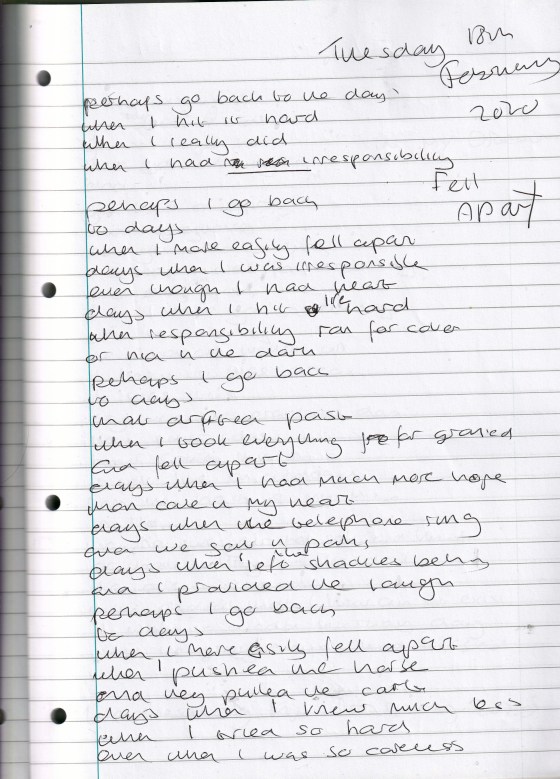 Tuesday 18th
February
2020
perhaps go back to the days
when I hit it hard
when I really did
when I had irresponsibility
Fell
Apart
perhaps I go back
to days
when I more easily fell apart
days when I was irresponsible
even though I had heart
days when I hit life hard
when responsibility ran for cover
or hid in the dark
perhaps I go back
to days
that drifted past
when I took everything for granted
and fell apart
days when I had much more hope
than care in my heart
days when the telephone rung
and we sat in parks
days when I left the shadows behind
and I provided the laugh
perhaps I go back
to days
when I more easily fell apart
when I pushed the horse
and they pulled the cart
days when I knew much less
when I tried so hard
even when I was so careless